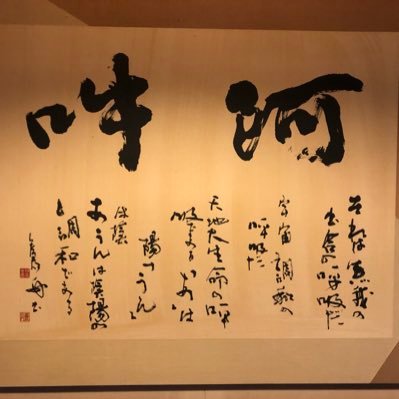 阿吽
それは の
呼吸だ
宇宙調和の
呼吸だ
天地大生命の呼
吸である あ は
陽 うん
は陰
あうんは陰陽の
調和である